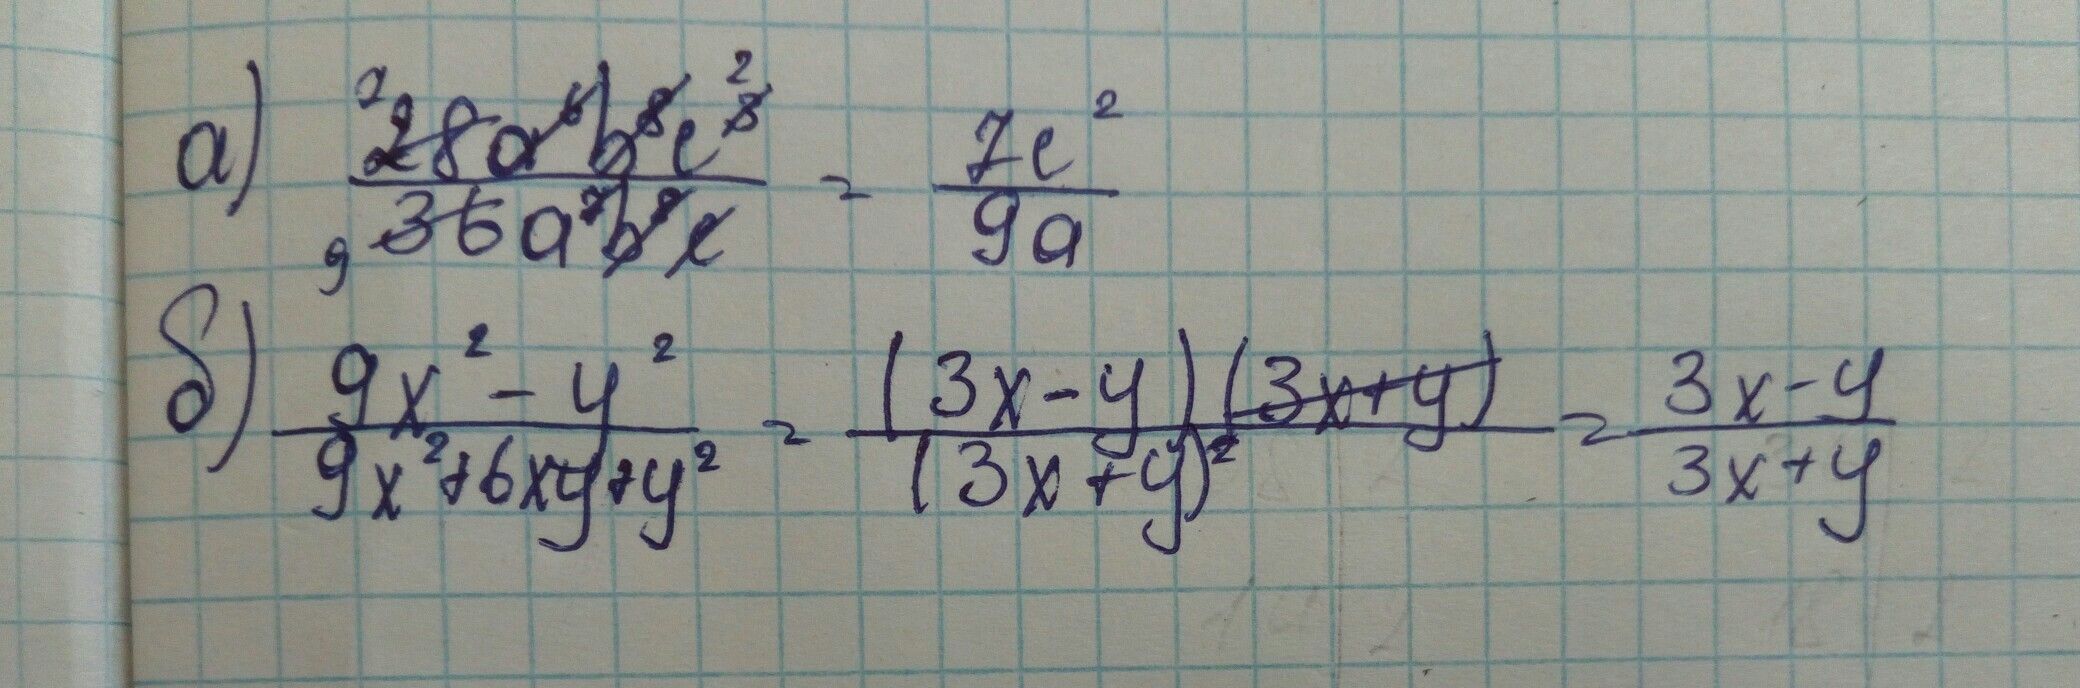 а) 28a⁶b⁸c³/36a⁷b⁸c = 7c²/9a
б) 9x² - y²/9x²+6xy+y² = (3x-y)(3x+y)/(3x+y)² = 3x-y/3x+y